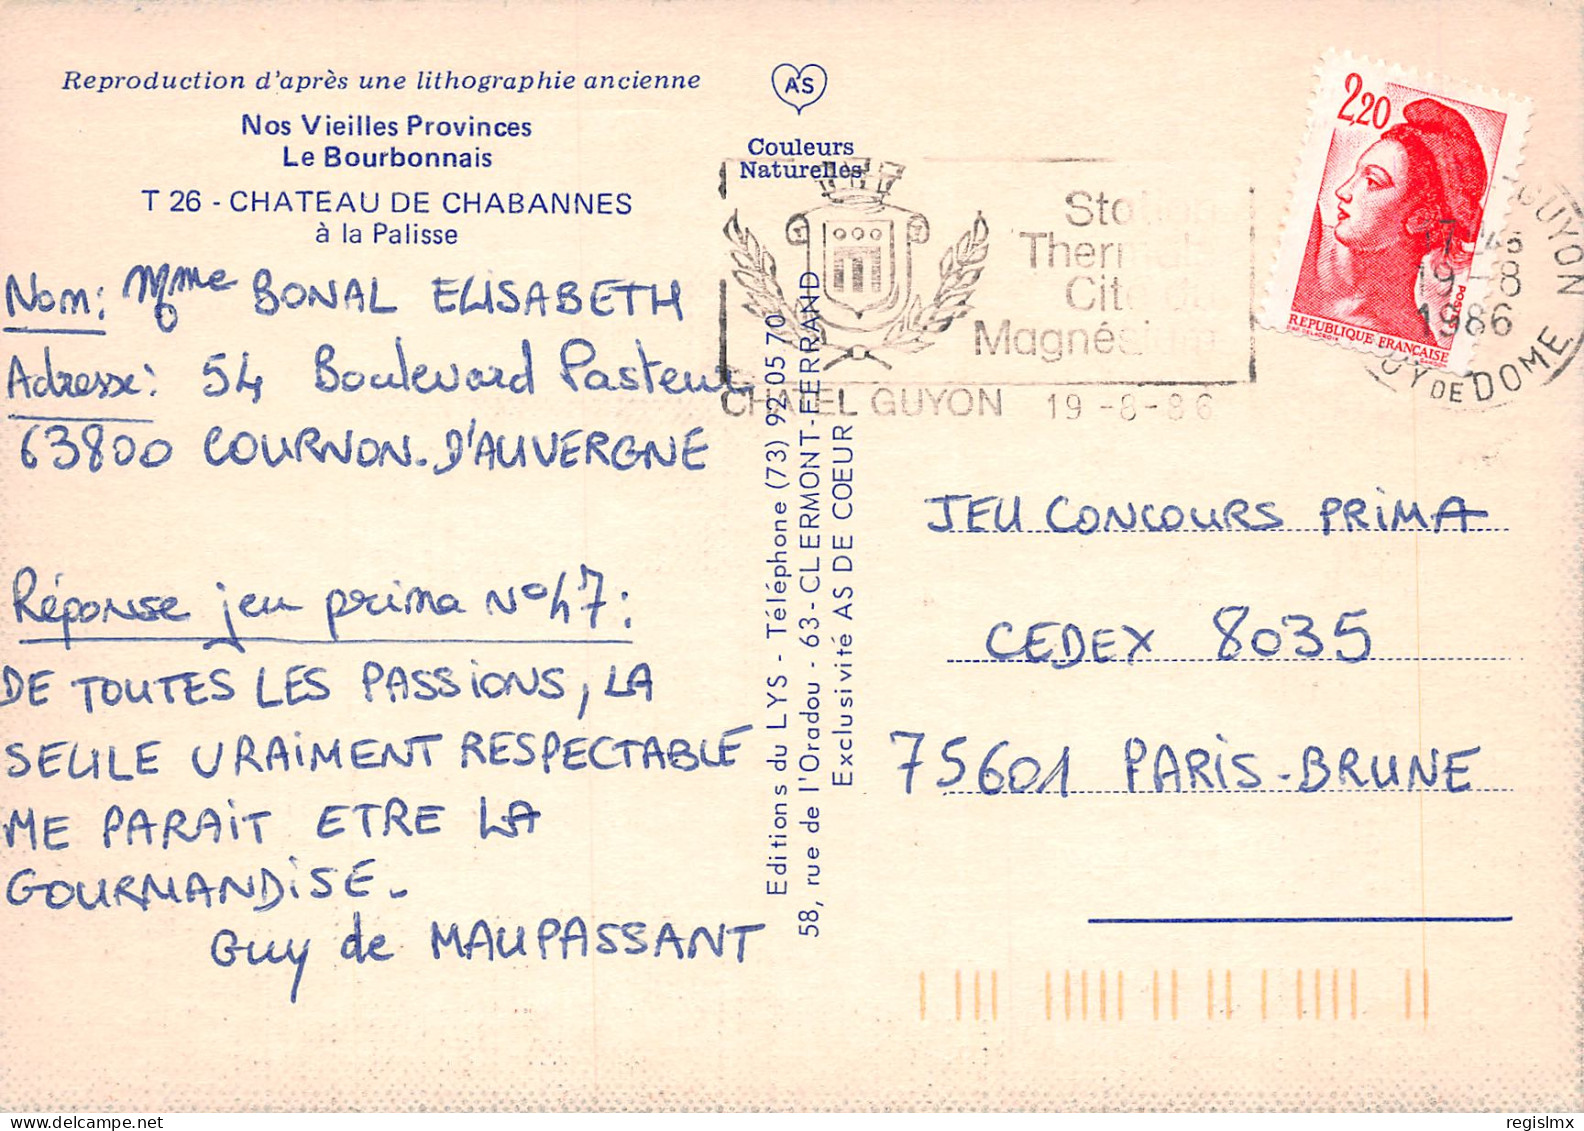 Reproduction d'après une lithographie ancienne
Nos Vieilles Provinces
Le Bourbonnais
T 26 - CHATEAU DE CHABANNES
à la Palisse
Nom: Mme BONAL ELISABETH
Adresse: 54 Boulevard Pasteur
63800 COURNON-D'AUVERGNE
Réponse jeu prima N°47:
DE TOUTES LES PASSIONS, LA
SEULE VRAIMENT RESPECTABLE
ME PARAIT ETRE LA
GOURMANDISE.
Guy de MAUPASSANT
AS
Couleurs
Naturelles
Editions du LYS - Téléphone (73) 92 05 70
58, rue de l'Oradou - 63 - CLERMONT-FERRAND
Exclusivité AS DE COEUR
Station
Thermale
Cité du
Magnésium
CHATEL GUYON 19-8-86
2,20
REPUBLIQUE FRANÇAISE
POSTES
GUYON
19-8
1986
PUY DE DOME
JEU CONCOURS PRIMA
CEDEX 8035
75601 PARIS-BRUNE
regislmx